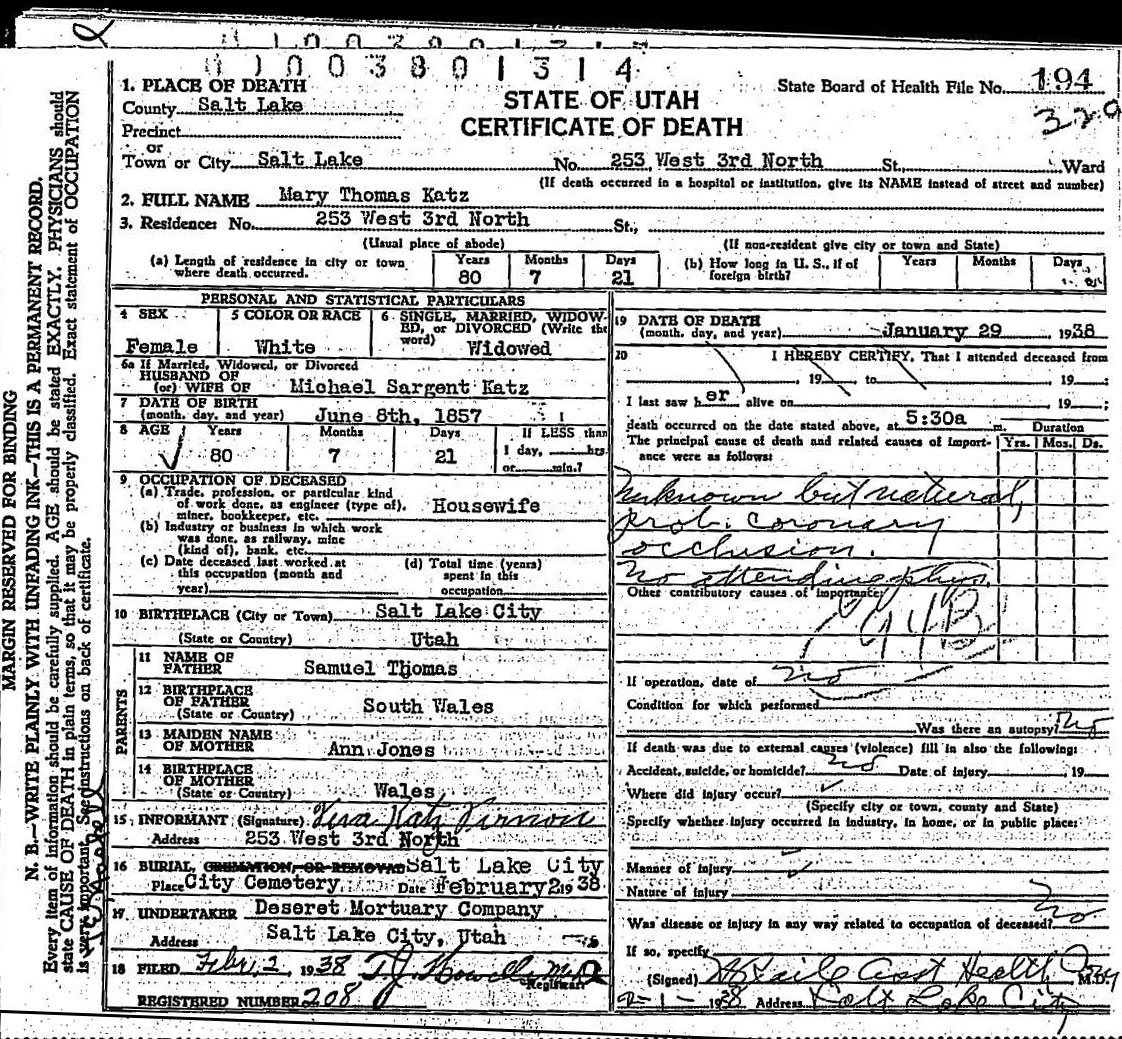 11003801314
1. PLACE OF DEATH
County Salt Lake
Precinct
or
Town or City Salt Lake No. 253 West 3rd North St., Ward
STATE OF UTAH
CERTIFICATE OF DEATH
State Board of Health File No. 194
329
(If death occurred in a hospital or institution, give its NAME instead of street and number)
2. FULL NAME Mary Thomas Katz
3. Residence: No. 253 West 3rd North St.,
(Usual place of abode) (If non-resident give city or town and State)
(a) Length of residence in city or town where death occurred. Years 80 Months 7 Days 21
(b) How long in U. S., if of foreign birth? Years Months Days
PERSONAL AND STATISTICAL PARTICULARS
4 SEX Female
5 COLOR OR RACE White
6 SINGLE, MARRIED, WIDOWED, or DIVORCED (Write the word) Widowed
6a If Married, Widowed, or Divorced
HUSBAND OF
(or) WIFE OF Michael Sargent Katz
7 DATE OF BIRTH
(month, day, and year) June 8th, 1857
8 AGE Years 80 Months 7 Days 21 If LESS than 1 day, hrs. or min.?
9 OCCUPATION OF DECEASED
(a) Trade, profession, or particular kind
of work done, as engineer (type of),
miner, bookkeeper, etc. Housewife
(b) Industry or business in which work
was done, as railway, mine
(kind of), bank, etc.
(c) Date deceased last worked at
this occupation (month and
year)
(d) Total time (years)
spent in this
occupation
10 BIRTHPLACE (City or Town) Salt Lake City
(State or Country) Utah
PARENTS
11 NAME OF
FATHER Samuel Thomas
12 BIRTHPLACE
OF FATHER South Wales
(State or Country)
13 MAIDEN NAME
OF MOTHER Ann Jones
14 BIRTHPLACE
OF MOTHER
(State or Country) Wales
15 INFORMANT (Signature) Vera Katz Vernon
Address 253 West 3rd North
16 BURIAL, CREMATION, OR REMOVAL Salt Lake City
Place City Cemetery Date February 2 1938
17 UNDERTAKER Deseret Mortuary Company
Address Salt Lake City, Utah
18 FILED Febr. 2, 1938 T.J. Howells M.D.
Registrar
REGISTERED NUMBER 208
19 DATE OF DEATH
(month, day, and year) January 29 1938
20 I HEREBY CERTIFY, That I attended deceased from
, 19 to , 19 ;
I last saw her alive on , 19 ;
death occurred on the date stated above, at 5:30a m.
Duration
The principal cause of death and related causes of importance were as follows: Yrs. Mos. Ds.
Unknown but natural,
prob. coronary
occlusion.
No attending phys.
Other contributory causes of importance:
94B
If operation, date of no
Condition for which performed
Was there an autopsy? No
If death was due to external causes (violence) fill in also the following:
Accident, suicide, or homicide? no Date of injury 19
Where did injury occur?
(Specify city or town, county and State)
Specify whether injury occurred in industry, in home, or in public place:
Manner of injury
Nature of injury
Was disease or injury in any way related to occupation of deceased? no
If so, specify
(Signed) Asst Health M.D.
2-1-1938 Address Salt Lake City
MARGIN RESERVED FOR BINDING
N. B.—WRITE PLAINLY WITH UNFADING INK—THIS IS A PERMANENT RECORD.
Every item of information should be carefully supplied. AGE should be stated EXACTLY. PHYSICIANS should
state CAUSE OF DEATH in plain terms, so that it may be properly classified. Exact statement of OCCUPATION
is very important. See instructions on back of certificate.